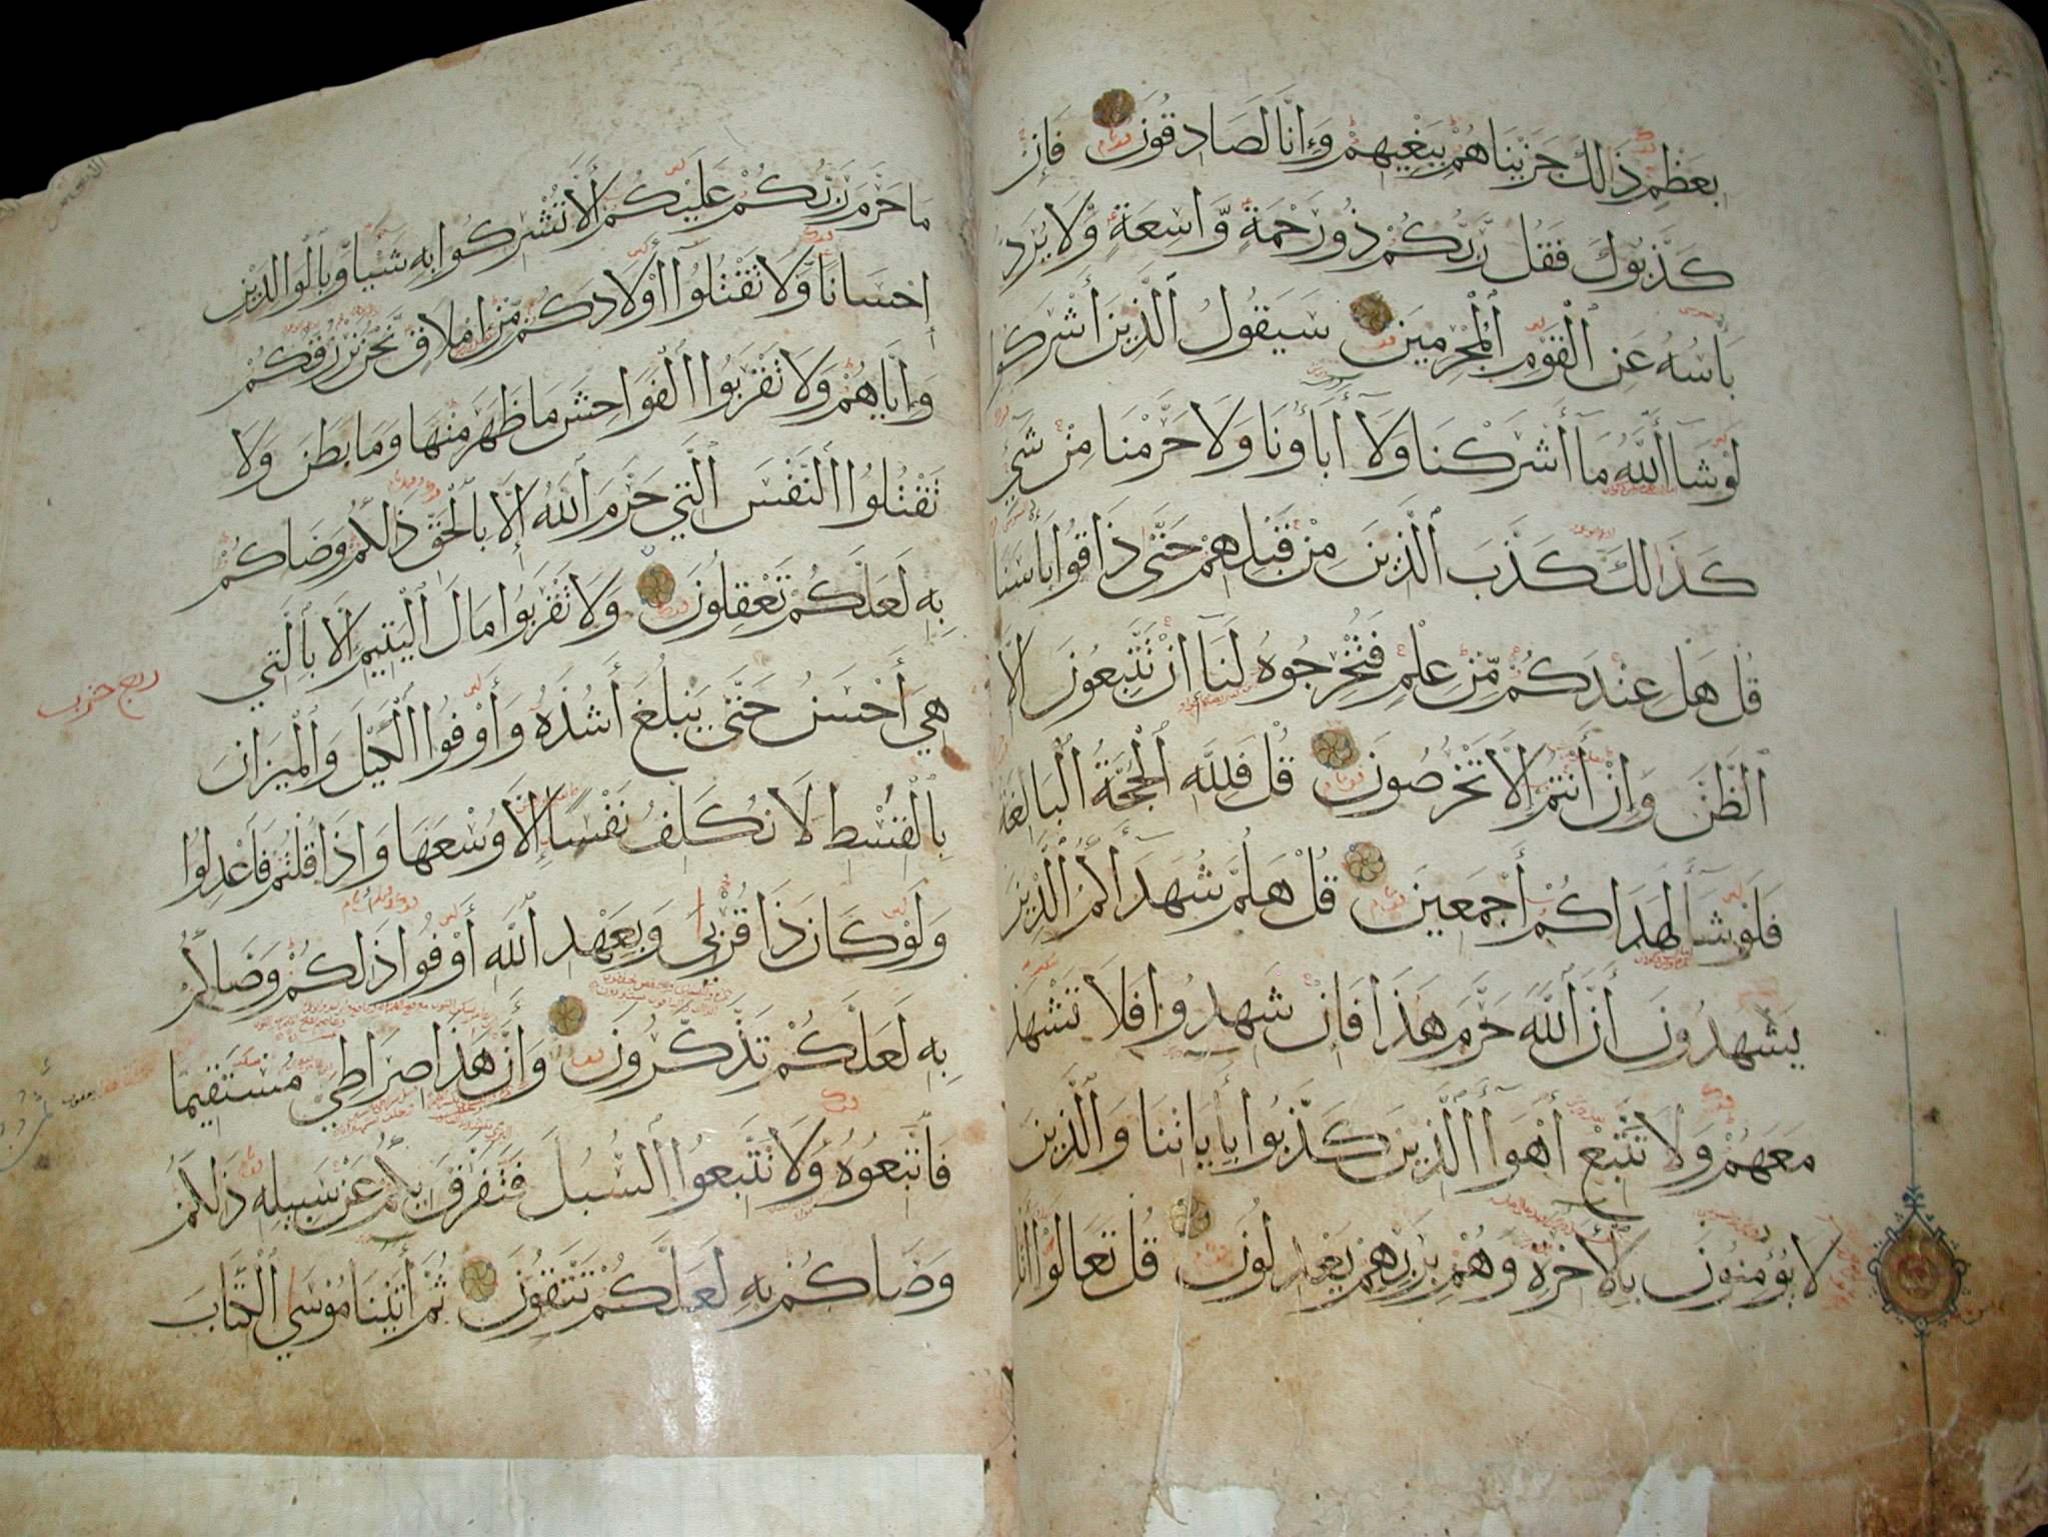 بِعَظْمٍ ذَالِكَ جَزَيْنَاهُمْ بِبَغْيِهِمْ وَإِنَّا لَصَادِقُونَ فَإِنْ
كَذَّبُوكَ فَقُل رَّبُّكُمْ ذُو رَحْمَةٍ وَّاسِعَةٍ وَّلَا يُرَدُّ
بَأْسُهُ عَنِ ٱلْقَوْمِ ٱلْمُجْرِمِينَ سَيَقُولُ ٱلَّذِينَ أَشْرَكُوا
لَوْ شَآ ٱللَّهُ مَآ أَشْرَكْنَا وَلَآ أَبَآؤُنَا وَلَا حَرَّمْنَا مِنْ شَيْءٍ
كَذَالِكَ كَذَّبَ ٱلَّذِينَ مِنْ قَبْلِهِمْ حَتَّى ذَاقُوا بَأْسَنَا
قُلْ هَلْ عِنْدَكُمْ مِّنْ عِلْمٍ فَتُخْرِجُوهُ لَنَآ إِنْ تَتَّبِعُونَ إِلَّا
ٱلظَّنَّ وَإِنْ أَنْتُمْ إِلَّا تَخْرُصُونَ قُلْ فَلِلَّهِ ٱلْحُجَّةُ ٱلْبَالِغَةُ
فَلَوْ شَآ لَهَدَاكُمْ أَجْمَعِينَ قُلْ هَلُمَّ شُهَدَآءَكُمُ ٱلَّذِينَ
يَشْهَدُونَ أَنَّ ٱللَّهَ حَرَّمَ هَذَا فَإِنْ شَهِدُوا فَلَا تَشْهَدْ
مَعَهُمْ وَلَا تَتَّبِعْ أَهْوَآ ٱلَّذِينَ كَذَّبُوا بِأَيَاتِنَا وَٱلَّذِينَ
لَا يُؤْمِنُونَ بِٱلْأَخِرَةِ وَهُمْ بِرَبِّهِمْ يَعْدِلُونَ قُلْ تَعَالَوْا أَتْلُ
مَا حَرَّمَ رَبُّكُمْ عَلَيْكُمْ أَلَّا تُشْرِكُوا بِهِ شَيْـًا وَّبِالْوَالِدَيْنِ
إِحْسَانًا وَّلَا تَقْتُلُوا أَوْلَادَكُمْ مِّنْ إِمْلَاقٍ نَّحْنُ نَرْزُقُكُمْ
وَإِيَّاهُمْ وَلَا تَقْرَبُوا ٱلْفَوَاحِشَ مَا ظَهَرَ مِنْهَا وَمَا بَطَنَ وَلَا
تَقْتُلُوا ٱلنَّفْسَ ٱلَّتِي حَرَّمَ ٱللَّهُ إِلَّا بِٱلْحَقِّ ذَلِكُمْ وَصَّاكُمْ
بِهِ لَعَلَّكُمْ تَعْقِلُونَ وَلَا تَقْرَبُوا مَالَ ٱلْيَتِيمِ إِلَّا بِٱلَّتِي
هِيَ أَحْسَنُ حَتَّى يَبْلُغَ أَشُدَّهُ وَأَوْفُوا ٱلْكَيْلَ وَٱلْمِيزَانَ
بِٱلْقِسْطِ لَا نُكَلِّفُ نَفْسًا إِلَّا وُسْعَهَا وَإِذَا قُلْتُمْ فَٱعْدِلُوا
وَلَوْ كَانَ ذَا قُرْبَى وَبِعَهْدِ ٱللَّهِ أَوْفُوا ذَلِكُمْ وَصَّاكُمْ
بِهِ لَعَلَّكُمْ تَذَّكَّرُونَ وَأَنَّ هَذَا صِرَاطِي مُسْتَقِيمًا
فَٱتَّبِعُوهُ وَلَا تَتَّبِعُوا ٱلسُّبُلَ فَتَفَرَّقَ بِكُمْ عَنْ سَبِيلِهِ ذَلِكُمْ
وَصَّاكُمْ بِهِ لَعَلَّكُمْ تَتَّقُونَ ثُمَّ أَتَيْنَا مُوسَى ٱلْكِتَابَ
ربع حزب